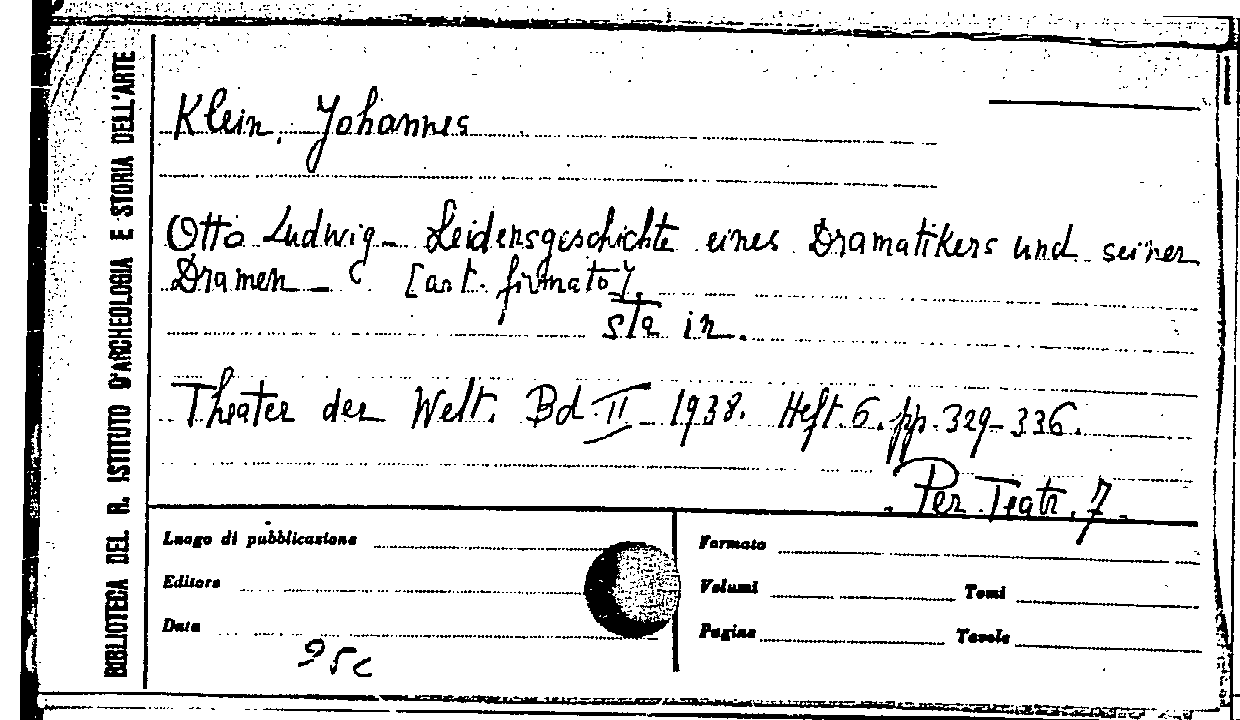 BIBLIOTECA DEL R. ISTITUTO D'ARCHEOLOGIA E STORIA DELL'ARTE
Klein, Johannes
Otto Ludwig - Leidensgeschichte eines Dramatikers und seiner
Dramen - [art. firmato].
sta in.
Theater der Welt. Bd II - 1938. Heft. 6. pp. 329-336.
Per. Teatr. 7.
Luogo di pubblicazione
Formato
Editore
Volumi Tomi
Data
Pagine Tavole
95c